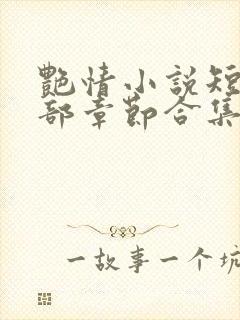 艷情小說短
部章節合集
一故事一个坑